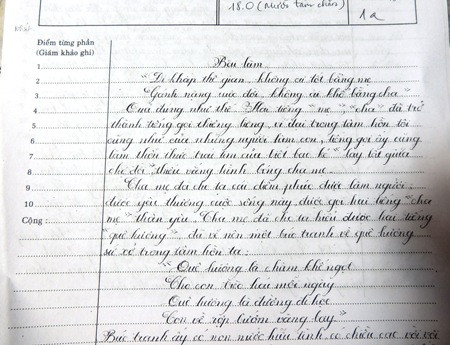 18.0 (Mười tám chẵn)
1a
Điểm từng phần
(Giám khảo ghi)
1 Bài làm
2 "Đi khắp thế gian, không ai tốt bằng mẹ
3 Gánh nặng cuộc đời, không ai khổ bằng cha"
4 Quả đúng như thế. Hai tiếng "mẹ", "cha" đã trở
5 thành tiếng gọi thiêng liêng, vĩ đại trong tâm hồn tôi
6 cũng như của những người làm con, tiếng gọi ấy cũng
7 làm thổn thức trái tim của biết bao kẻ
8 chợ đời, thiếu vắng hình bóng cha mẹ.
9 Cha mẹ đã cho ta cái diễm phúc được làm người,
10 được yêu thương cuộc sống này, được gọi hai tiếng "cha
Cộng : mẹ" thân yêu. Cha mẹ đã cho ta hiểu được hai tiếng
"quê hương", đã vẽ nên một bức tranh về quê hương
xứ sở trong tâm hồn ta:
"Quê hương là chùm khế ngọt
Cho con trèo hái mỗi ngày
Quê hương là đường đi học
Con về rợp bướm vàng bay"
Bức tranh ấy có non nước hữu tình, có chiều cao vời vợi